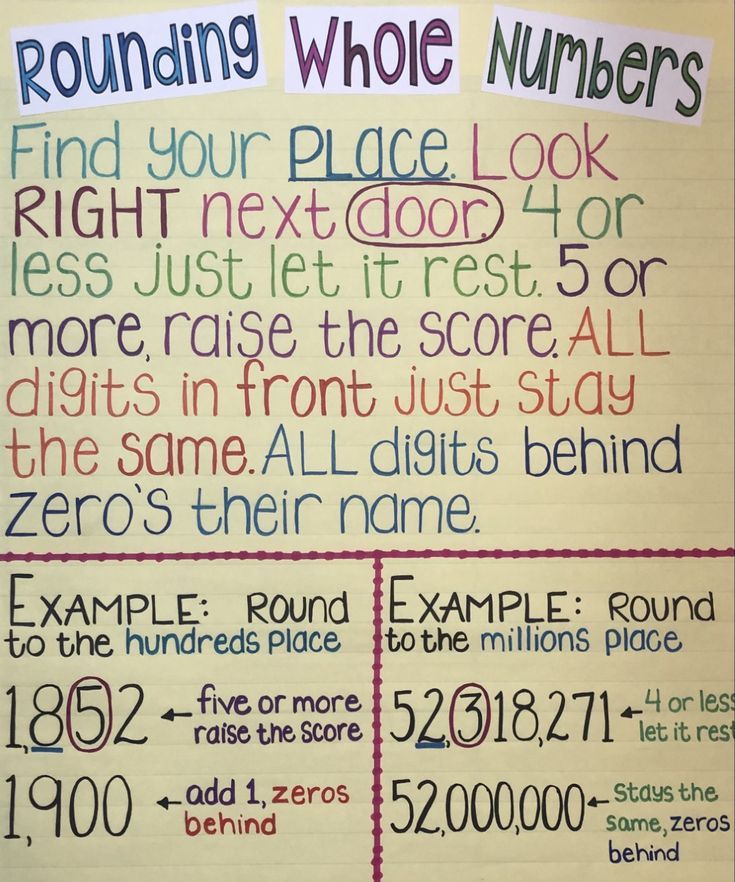 Rounding Whole Numbers
Find your PLace. Look
RIGHT next door. 4 or
less just let it rest. 5 or
more, raise the score. ALL
digits in front just stay
the same. ALL digits behind
zero's their name.
EXAMPLE: ROUND
to the hundreds place
1,852 ← five or more
raise the score
1,900 ← add 1, zeros
behind
EXAMPLE: ROUND
to the millions place
52,318,271 ← 4 or less
let it rest
52,000,000 ← Stays the
same, zeros
behind